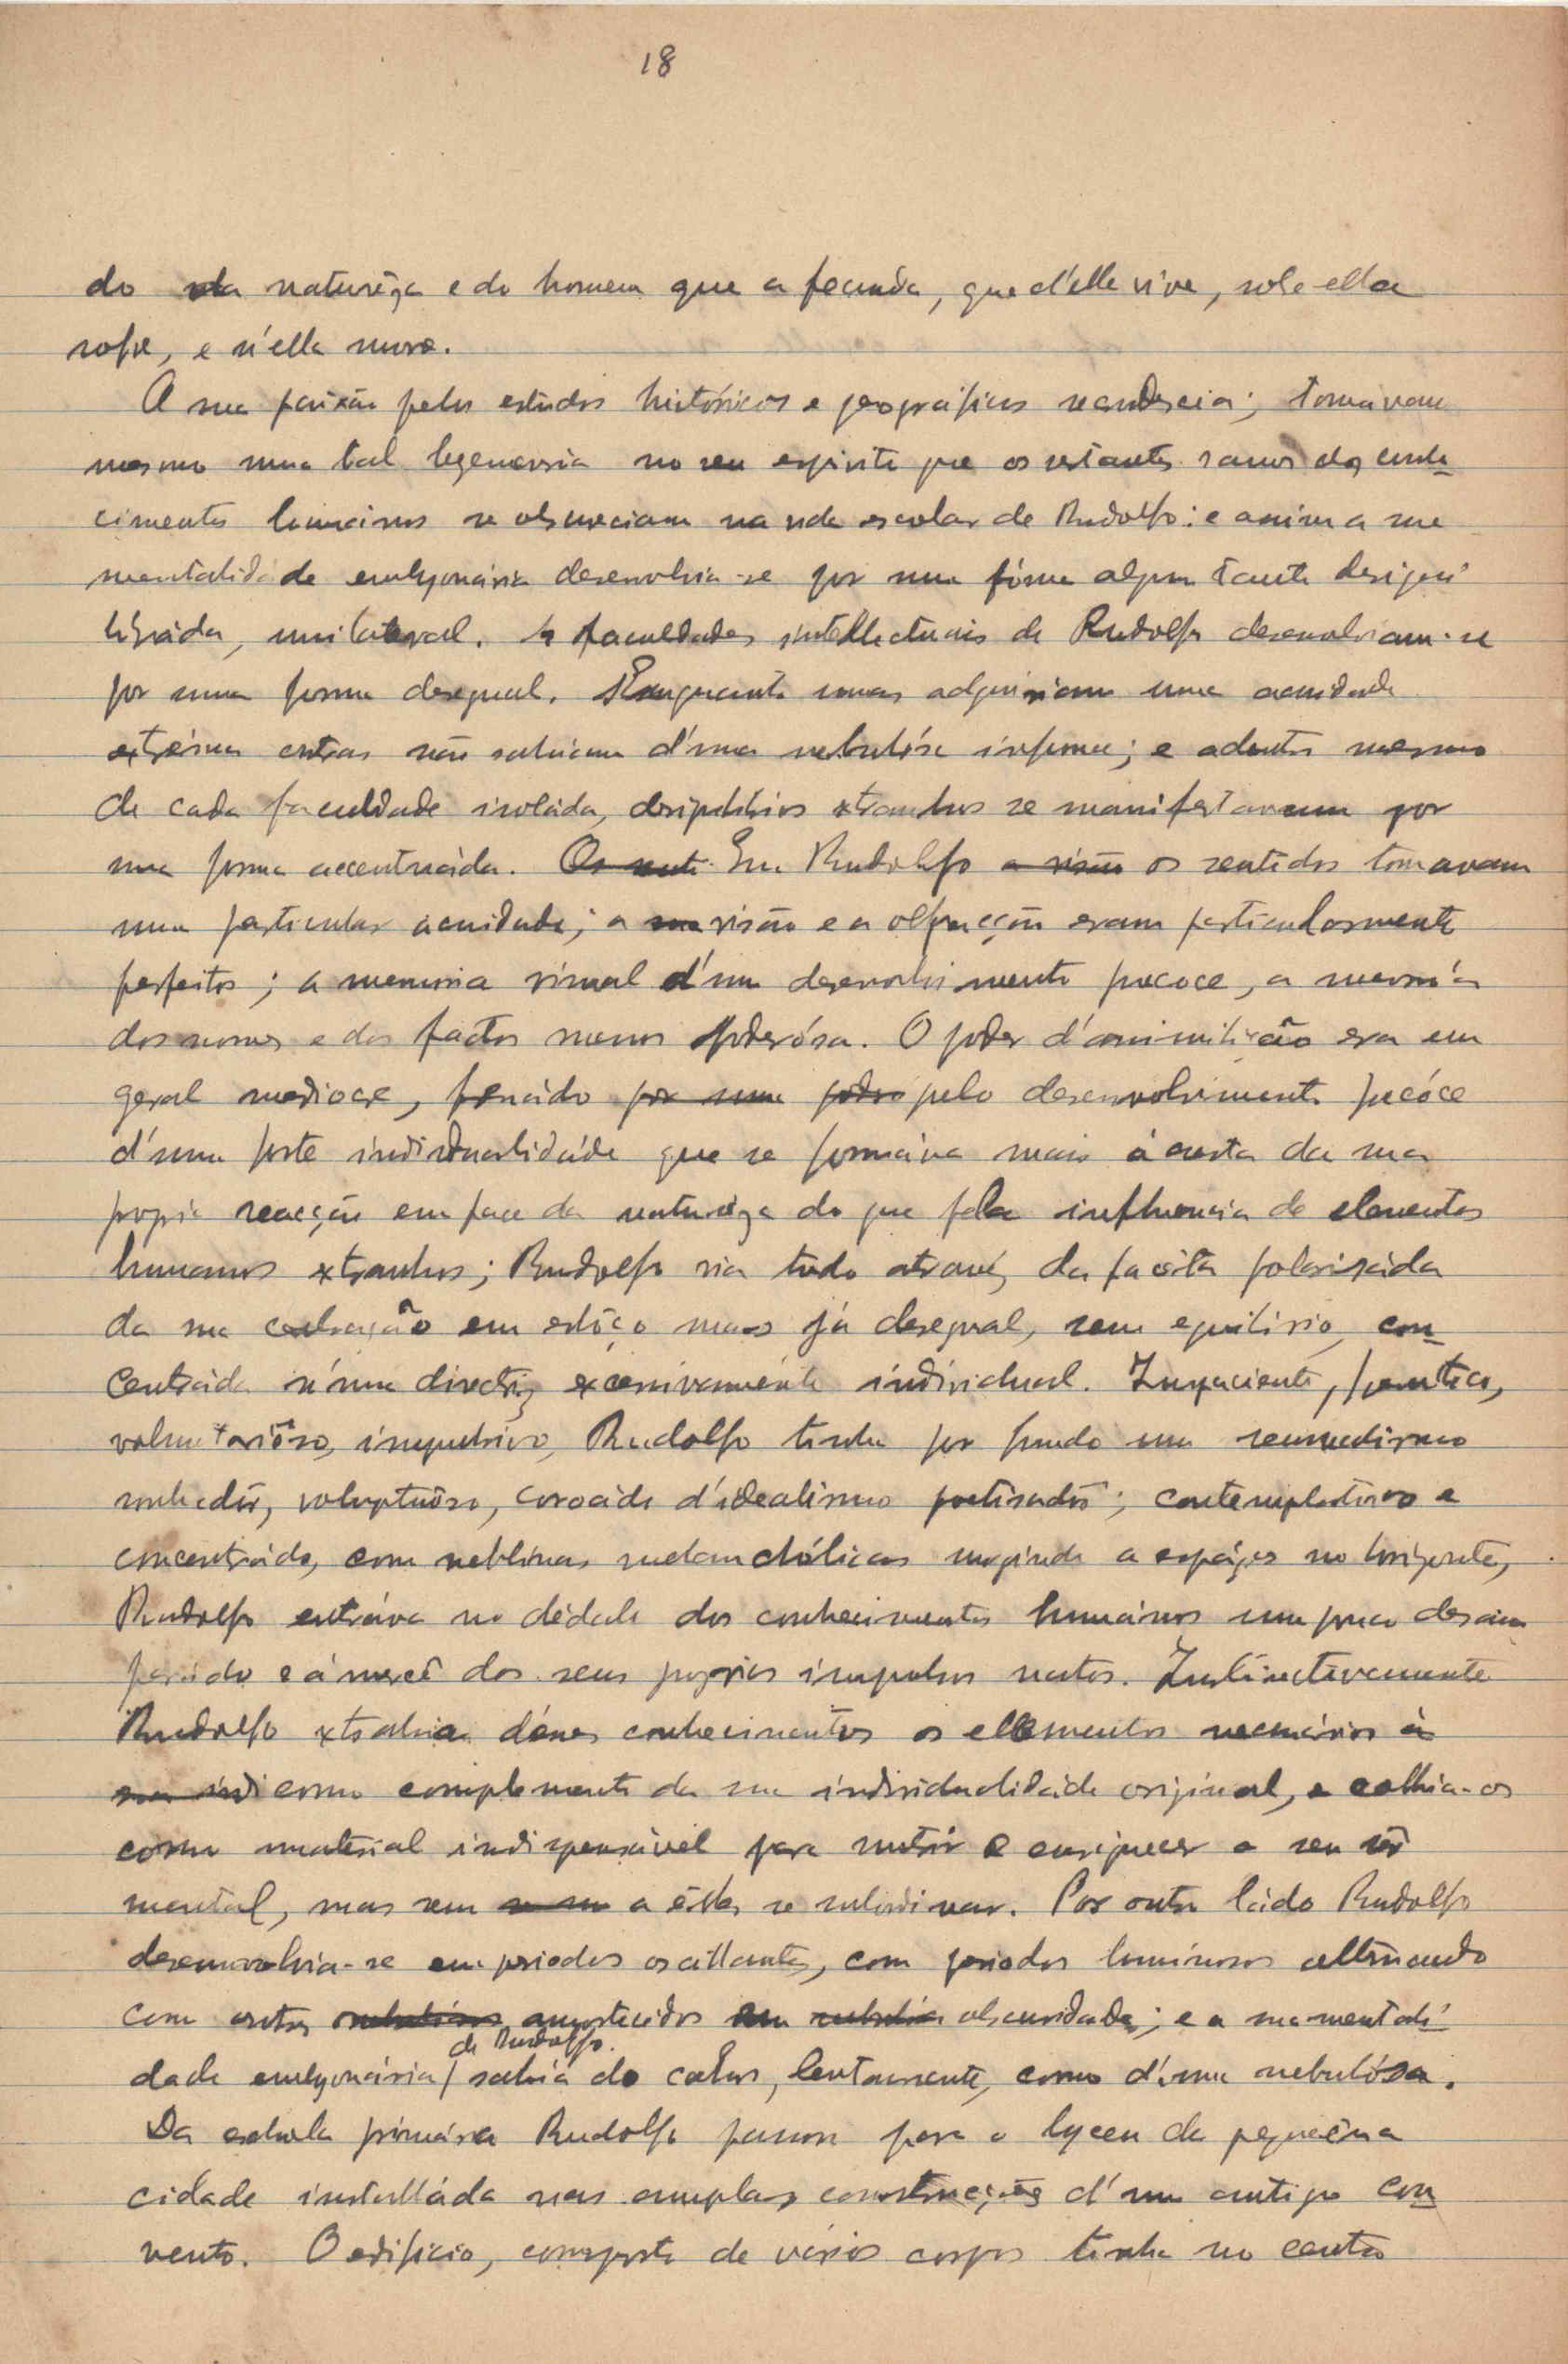 18
do da naturêza e do homem que a fecunda, que d'élla vive, sobe ella
sofre, e n'élla morre.
A sua paixão pelos estudos históricos e geográficos recrudescia; tomavam
mesmo uma tal hegemonia no seu espirito que os restantes ramos dos conhe-
cimentos humanos se obscureciam na vida escolar de Rudolfo: e assim a sua
mentalidade embryonária desenvolvia-se por uma fórma algum tanto desiqui
librada, unilateral. As faculdades intellectuais de Rudolfo desenvolviam-se
por uma forma desegual. Emquanto umas adquiriam uma acuidade
extréma outras não sahiam d'uma nebulósa informe; e adentro mesmo
de cada faculdade isoláda, desiquilibrios extranhos se manifestavam por
uma forma accentuáda. Os senti Em Rudolfo a visão os sentidos tomavam
uma particular acuidade; a sua visão e a olfacção eram particularmente
perfeitos; a memoria visual d'um desenvolvimento precoce, a memória
dos nomes e dos factos menos poderósa. O poder d'assimilação era em
geral mediocre, frenádo por uma podero pelo desenvolvimento precóce
d'uma forte individualidáde que se formáva mais á custa da sua
propria reacção em face da naturêza do que pela influencia de elementos
humanos extranhos; Rudolfo via tudo através da facêta polarisáda
da sua cerebração em esbôço mas já desegual, sem equilibrio, con-
centráda n'uma directriz excessivamente individual. Impaciente, frenetico,
voluntariôso, impulsivo, Rudolfo tinha por fundo um
sonhadôr, voluptuôso, coroádo d'idealismo poetisadôr; contemplativo e
concentrádo, com neblinas melanchólicas surgindo a espáços no horizonte,
Rudolfo entráva no dédalo dos conhecimentos humános um pouco desam
parádo e á mercê dos seus proprios impulsos natos. Instinctivamente
Rudolfo extrahia dêsses conhecimentos os ellementos necessários á
sua indi como complemento da sua individualidáde original, e colhia-os
como material indispensável para nutrir e enriquecer o seu sêr
mental, mas sem a êsses se subordinar. Por outro ládo Rudolfo
desenvolvia-se em periodos oscillantes, com periodos luminosos alternando
com outros amortecidos em obscuridade; e a sua mentali-
de Rudolfo.
dade embryonária / sahía do cahos, lentamente, como d'uma nebulósa.
Da eschola primária Rudolfo passou para o lyceu da pequêna
cidade installáda nas amplas construcções d'um antigo con-
vento. O edificio, composto de vários corpos tinha no centro